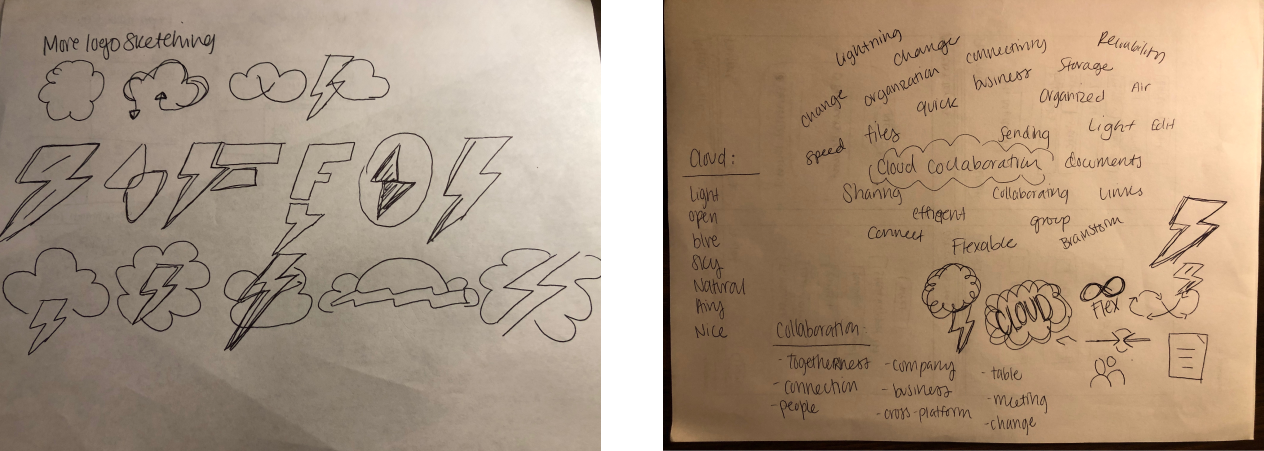 More logo Sketching
Lightning change connectivity Reliability
change organization business Storage
quick Organized Air
speed files Sending Light Edit
Cloud collaboration documents
Sharing Collaborating Links
efficient group
Connect Flexable Brainstorm
Cloud:
Light
open
blue
Sky
Natural
Airy
Nice
CLOUD
Flex
Collaboration:
- togetherness
- connection
- people
- company
- business
- cross-platform
- table
- meeting
- change